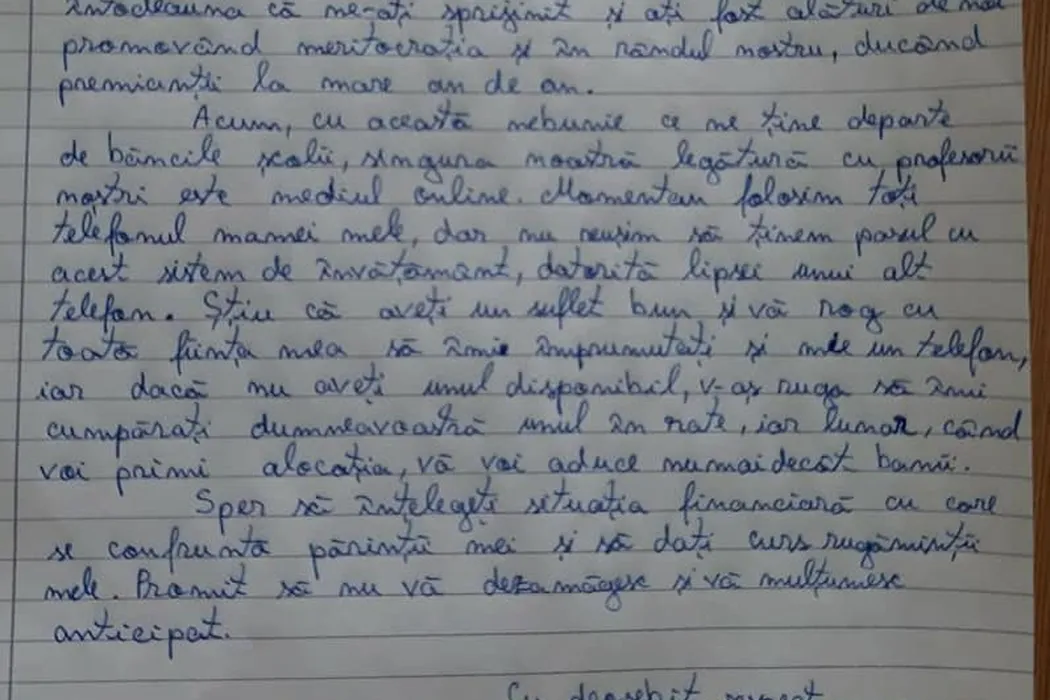 întodeauna că ne-ați sprijinit și ați fost alături de noi
promovând meritocrația și în rândul nostru, ducând
premianții la mare an de an.
Acum, cu această nebunie ce ne ține departe
de băncile școlii, singura noastră legătură cu profesorii
noștri este mediul online. Momentan folosim toți
telefonul mamei mele, dar nu reușim să ținem pasul cu
acest sistem de învățământ, datorită lipsei unui alt
telefon. Știu că aveți un suflet bun și vă rog cu
toată ființa mea să îmi împrumutați și mie un telefon,
iar dacă nu aveți unul disponibil, v-aș ruga să îmi
cumpărați dumneavoastră unul în rate, iar lunar, când
voi primi alocația, vă voi aduce numaidecât banii.
Sper să înțelegeți situația financiară cu care
se confruntă părinții mei și să dați curs rugăminții
mele. Promit să nu vă dezamăgesc și vă mulțumesc
anticipat.
Cu deosebit respect